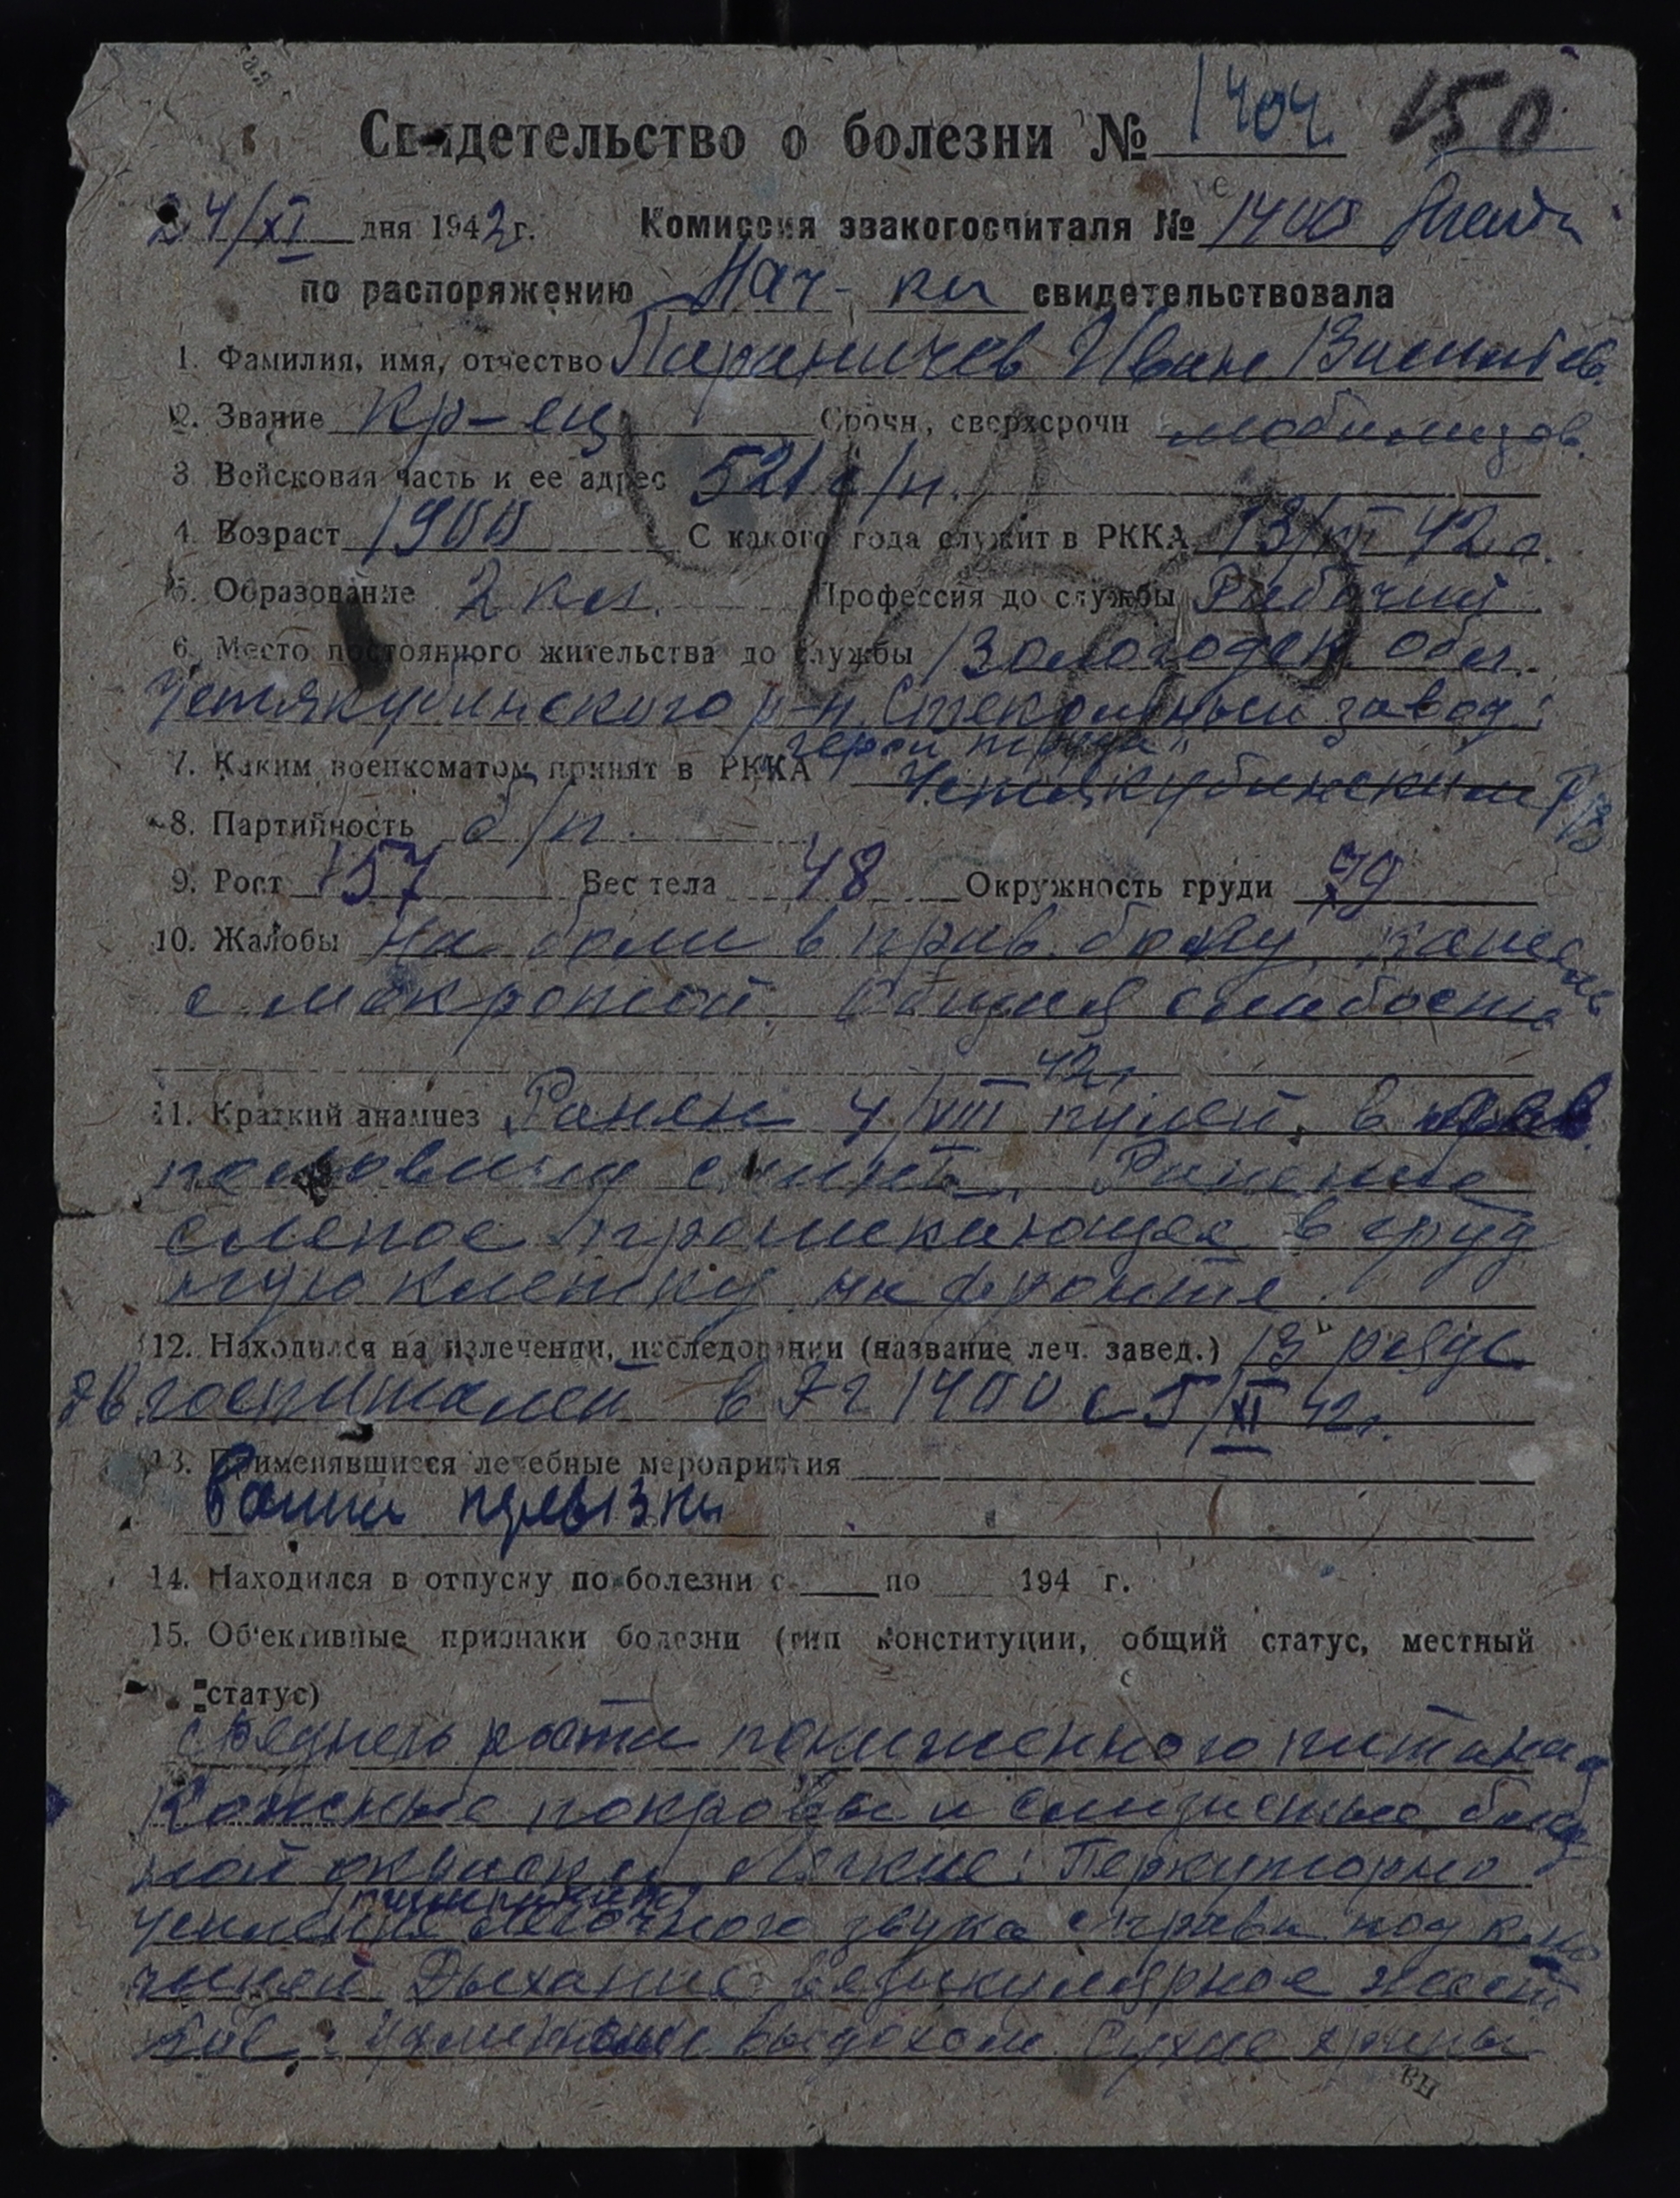 Свидетельство о болезни № 1404 150
24/XI дня 1942 г. Комиссия эвакогоспиталя № 1400
по распоряжению Нач-ка свидетельствовала
1. Фамилия, имя, отчество Параничев Иван Васильев.
2. Звание Кр-ец Срочн, сверхсрочн мобилизов.
3 Войсковая часть и ее адрес 521 с/п.
4. Возраст 1900 С какого года служит в РККА 13/III 42 г.
5. Образование 2 кл. Профессия до службы Рабочий
6. Место постоянного жительства до службы Вологодск. обл.
Устякубинского р-н. Стекольный завод
"герой труда"
7. Каким военкоматом принят в РККА Устякубинским РВ
8. Партийность б/п.
9. Рост 157 Вес тела 48 Окружность груди 79
10. Жалобы На боли в прав. боку, кашель
с мокротой. Общая слабость
42г.
11. Краткий анамнез Ранен 4/VIII пулей в прав.
половину спины. Ранение
слепое проникающее в груд
ную клетку на фронте.
12. Находился на излечении, исследовании (название леч. завед.) В ряде
госпиталей в ЭГ 1400 с 5/XI 42г.
13. Применявшиеся лечебные мероприятия
14. Находился в отпуску по болезни с по 194 г.
15. Об'ективные признаки болезни (тип конституции, общий статус, местный
статус)
Среднего роста пониженного питания
Кожные покровы и слизистые блед
ной окраски. Легкие: Перкуторно
легочного звука справа под клю
чицей Дыхание везикулярное жест
кое с выдохом. Сухие хрипы